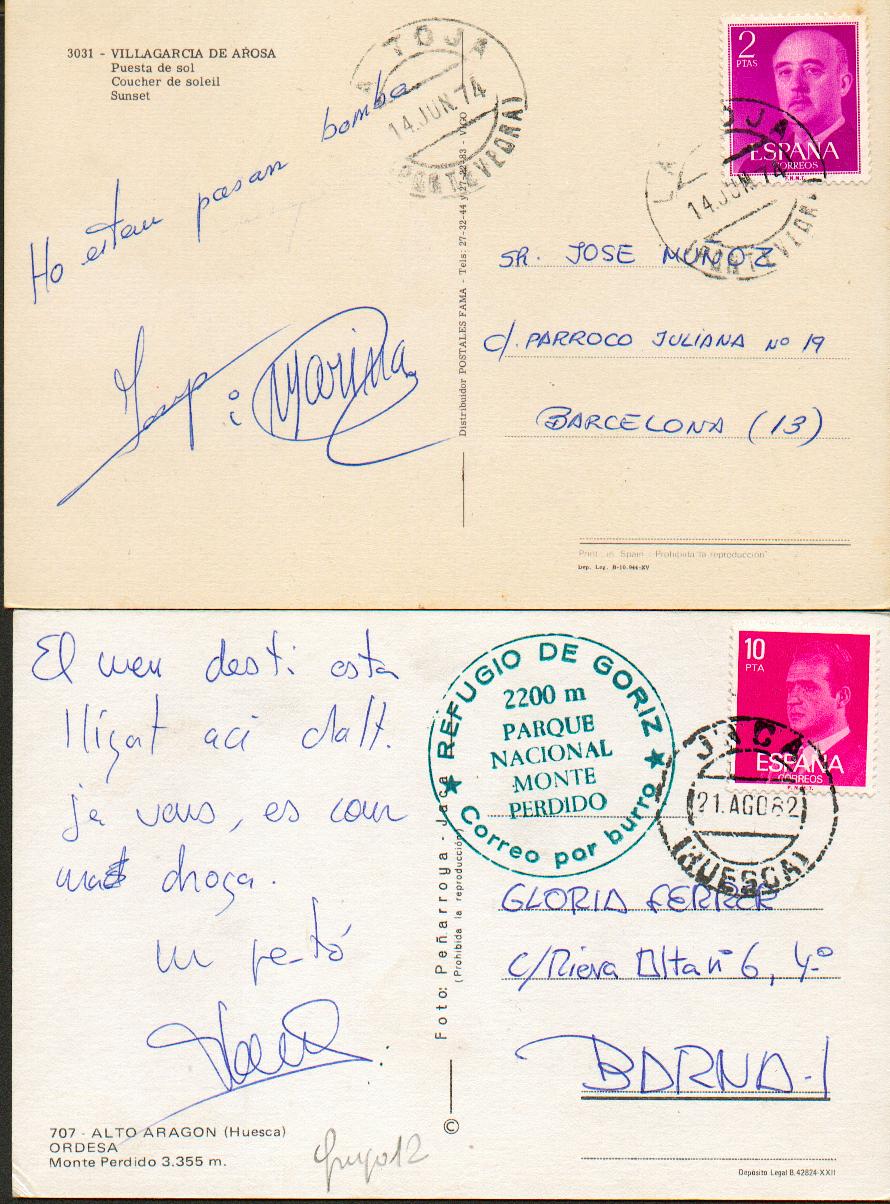 3031 - VILLAGARCIA DE AROSA
Puesta de sol
Coucher de soleil
Sunset
LA TOJA
14.JUN.74
(PONTEVEDRA)
2
PTAS
ESPAÑA
CORREOS
F.N.M.T.
LA TOJA
14.JUN.74
(PONTEVEDRA)
Ho estan pasan bomba
Josep i Marina
Distribuidor POSTALES FAMA - Tels: 27-32-44 y 27-32-83 - VIGO
SR. JOSE MUÑOZ
C/. PARROCO JULIANA nº 19
BARCELONA (13)
Print. in Spain - Prohibida la reproducción
Dep. Leg. B-10.944-XV
El meu destí esta
lligat aci dalt.
ja veus, es com
una droga.
un petó
REFUGIO DE GORIZ
2200 m
PARQUE
NACIONAL
MONTE
PERDIDO
Correo por burro
10
PTA
ESPAÑA
CORREOS
F.N.M.T.
JACA
21.AGO82
(HUESCA)
Foto: Peñarroya - Jaca
(Prohibida la reproducción)
©
GLORIA FERRER
C/Riera Alta nº 6, 4º
BARNA-1
707 - ALTO ARAGON (Huesca)
ORDESA
Monte Perdido 3.355 m.
Grupo 12
Depósito Legal B.42824-XXII